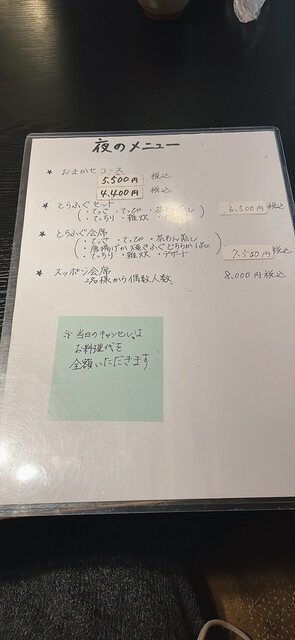 夜のメニュー
★ おまかせコース
5,500円 税込
4,400円 税込
★ とらふぐセット 6,500円 税込
(・てっさ ・てっぴ ・茶わん
・てっちり ・雑炊)
★ とらふぐ会席
(・てっさ ・てっぴ ・茶わん蒸し
・唐揚げか焼きふぐどちらか1品
・てっちり ・雑炊 ・デザート) 7,500円税込
★ スッポン会席 8,000円税込
2名様から偶数人数
※当日のキャンセルは
お料理代を
全額いただきます